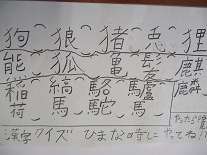 狗 狼 猪 兎 狸
能 狐 麒
稲 縞 駱 驢 麟
荷 馬 駝 馬
漢字クイズ ひまな時にやってね!!